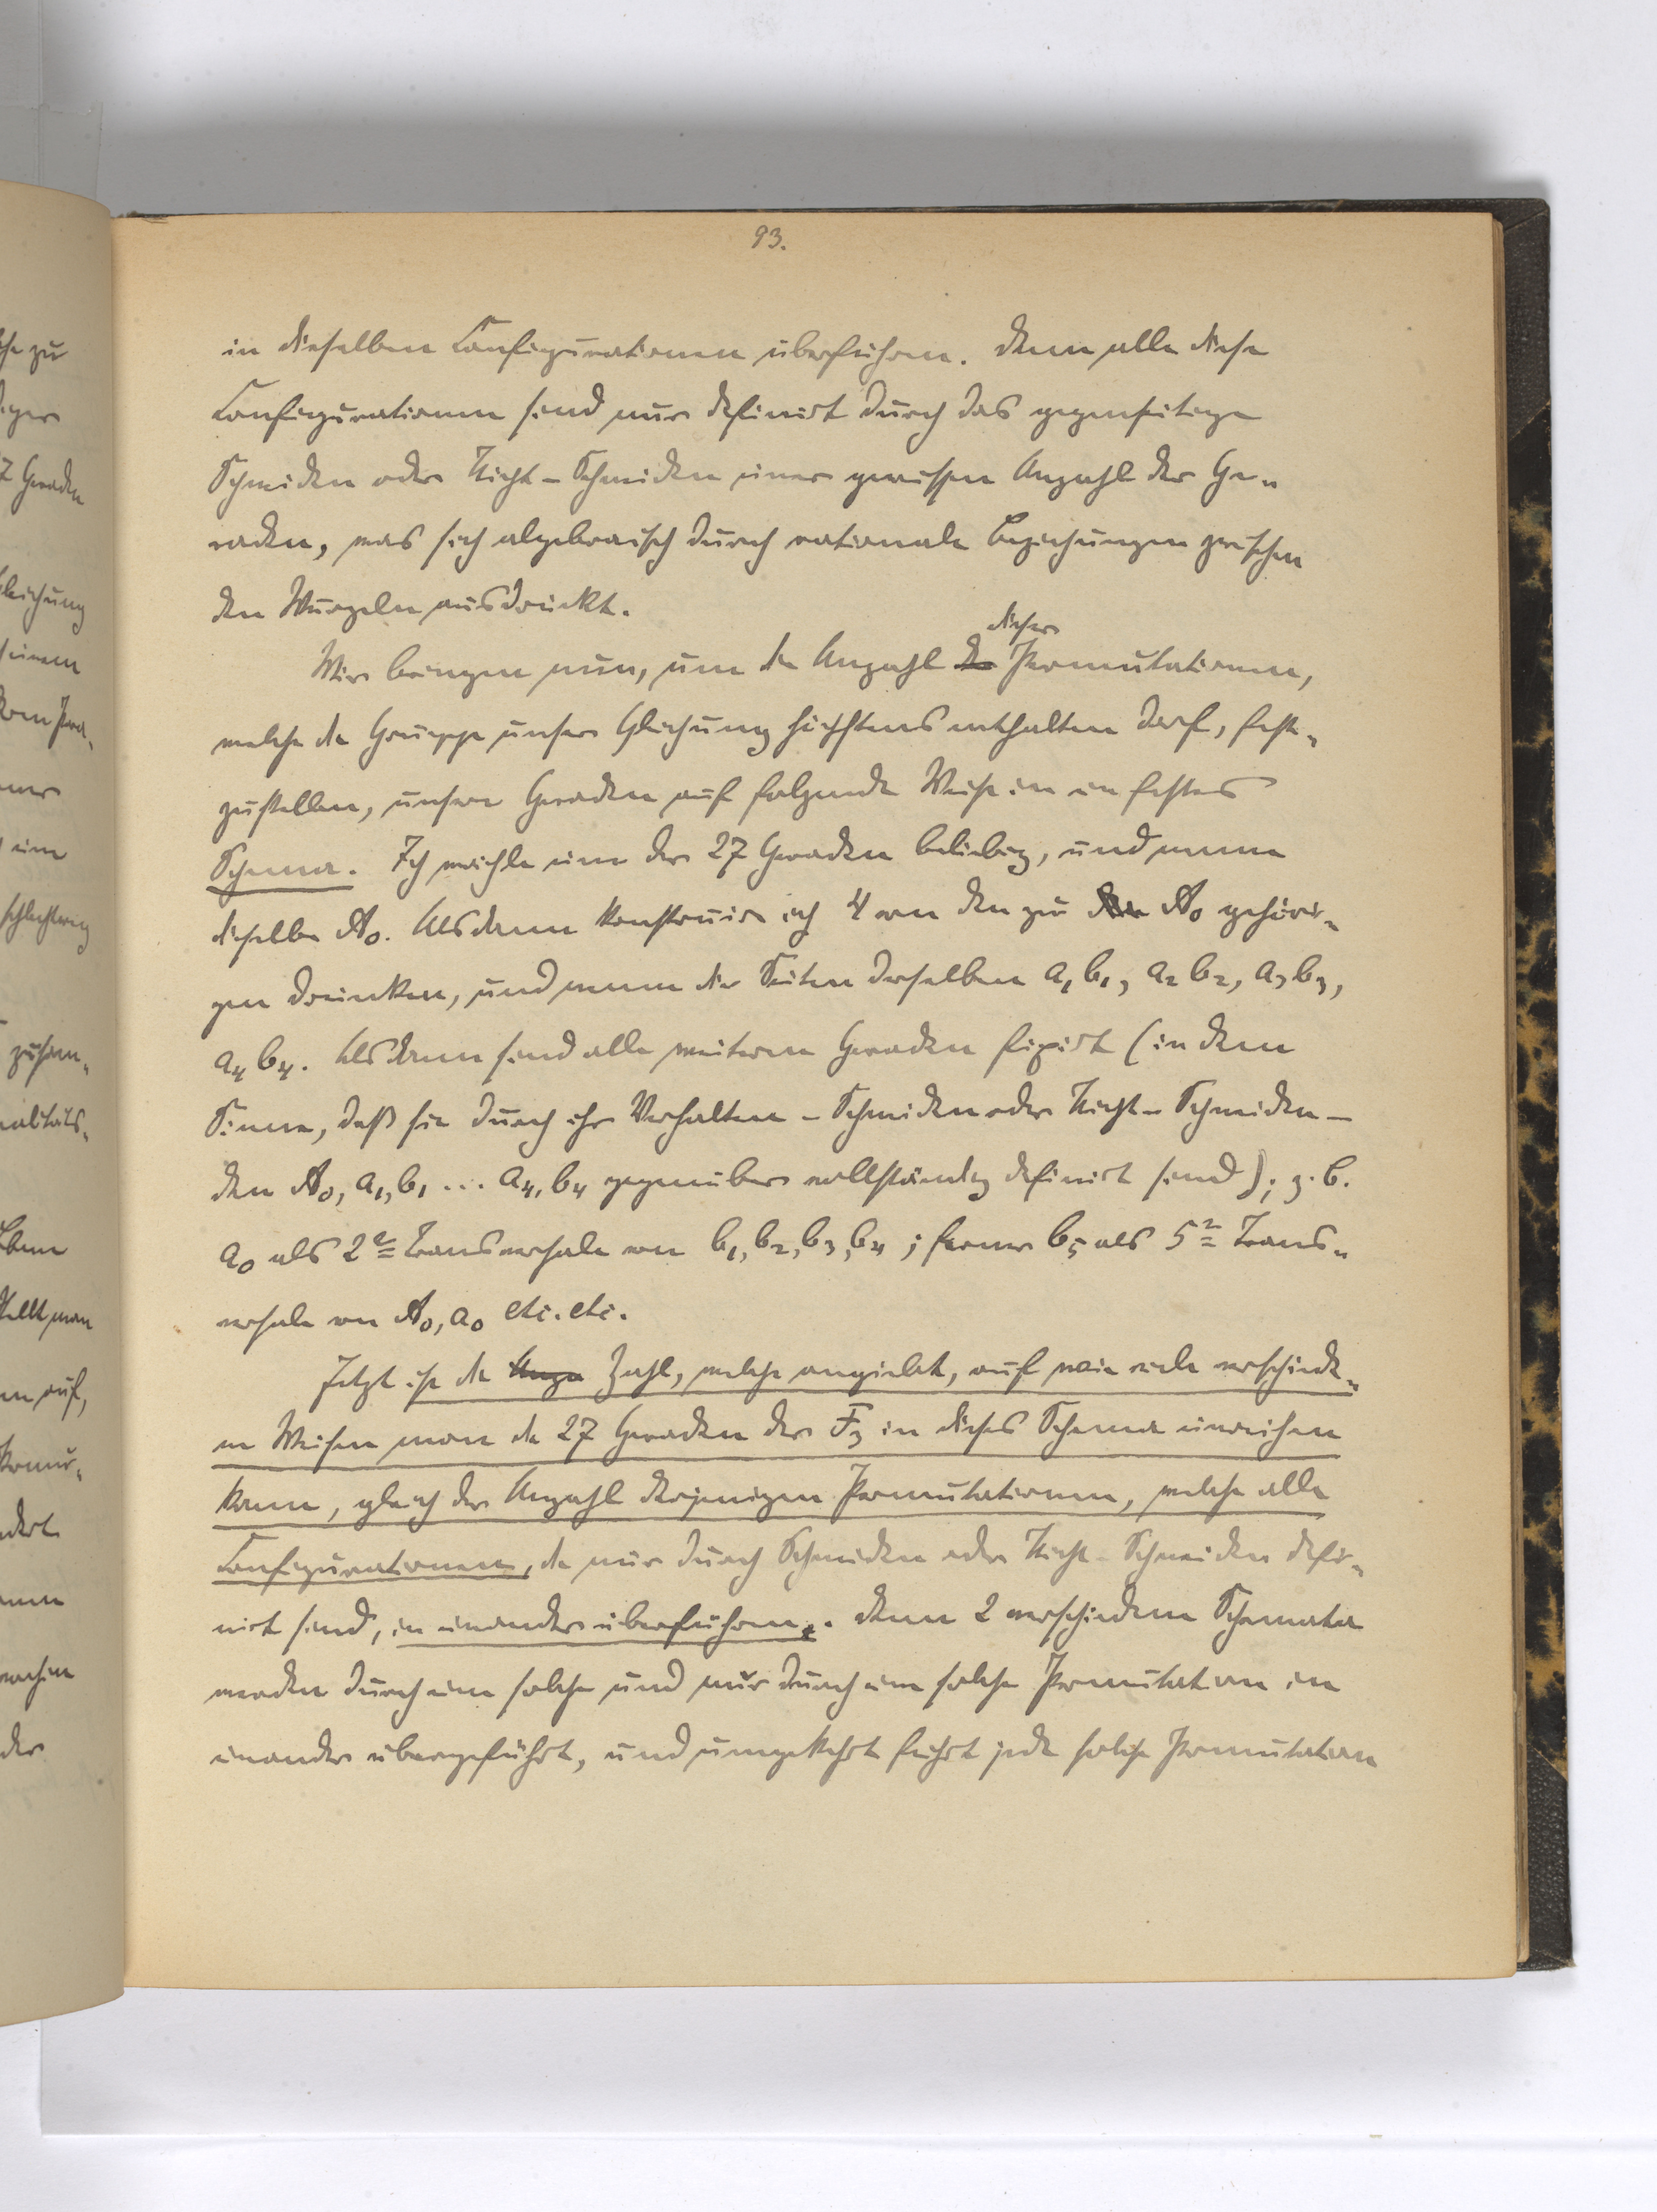 93.
in dieselben Configurationen überführen. Denn alle diese
Configurationen sind nur definirt durch das gegenseitige
Schneiden oder Nicht-Schneiden einer gewissen Anzahl der Ge-
raden, was sich algebraisch durch rationale Beziehungen zwischen
den Wurzeln ausdrückt.
dieser
Wir bringen nun, um die Anzahl der Permutationen,
welche die Gruppe unserer Gleichung höchstens enthalten darf, fest-
zustellen, unsere Geraden auf folgende Weise in ein festes
Schema. Ich wähle eine der 27 Geraden beliebig, und nenne
dieselbe A₀. Alsdann konstruire ich 4 von den zu A₀ gehöri-
gen Dreiecken, und nenne die Seiten derselben a₁b₁, a₂b₂, a₃b₃,
a₄b₄. Alsdann sind alle weiteren Geraden fixirt (in dem
Sinne, daß sie durch ihr Verhalten - Schneiden oder Nicht-Schneiden -
den A₀, a₁,b₁ ... a₄,b₄ gegenüber vollständig definirt sind); z. B.
a₀ als 2te Transversale von b₁,b₂,b₃,b₄; ferner b₅ als 5te Trans-
versale von A₀, a₀ etc. etc.
Jetzt ist die Anza Zahl, welche angiebt, auf wie viele verschiede-
ne Weisen man die 27 Geraden der F₃ in dieses Schema einreihen
kann, gleich der Anzahl derjenigen Permutationen, welche alle
Configurationen, die nur durch Schneiden oder Nicht-Schneiden defi-
nirt sind, in einander überführen. Denn 2 verschiedene Schemata
werden durch eine solche und nur durch eine solche Permutation in
einander übergeführt, und umgekehrt führt jede solche Permutation